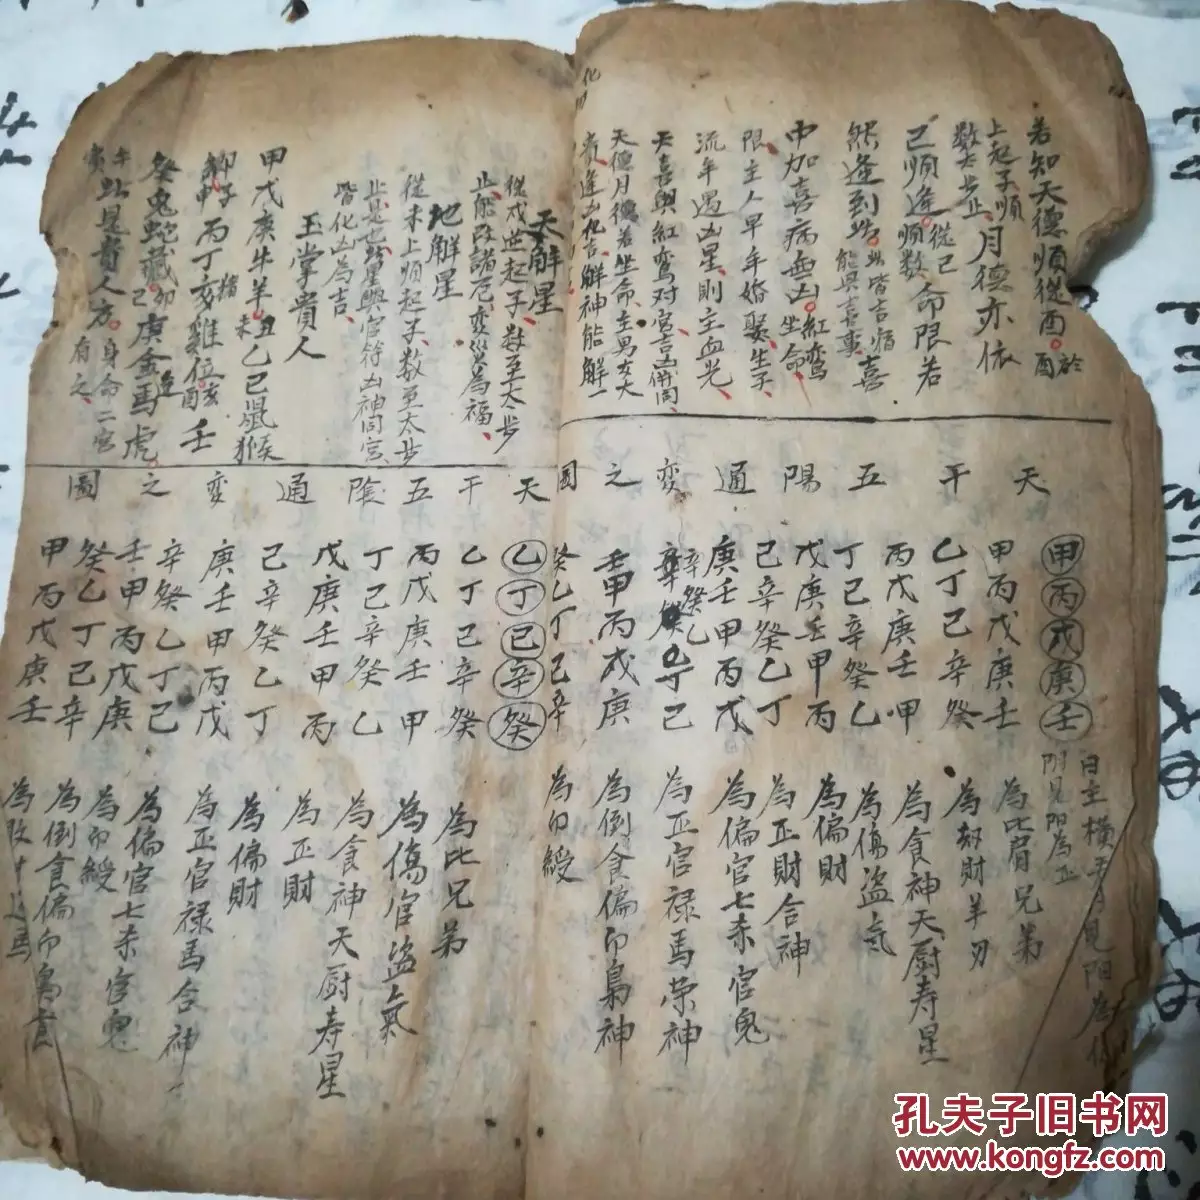 若知天德順從酉。於酉
上起子順數太步止。月德亦依
巳順逢。從巳順数命限若
然逢到此。此皆吉宿能與喜事喜
中加喜病無凶。紅鸞坐命
限主人早年婚娶、生子、
流年遇凶星、則主血光、
天喜與紅鸞对宮吉凶併同、
天德月德若坐命、主男女大
貴逢凶化吉、解神能解一
天解星
從戌逆起子、数至太步
止、能改諸厄、変災為福、
地解星
從未上順起子、数至太步
止是也此星與官符凶神同宮、
皆化凶為吉、
玉掌貴人
甲戊庚牛羊。丑未乙己鼠猴
子申丙丁亥猪雞位。亥酉壬
癸兔蛇藏。卯巳庚金馬虎。
此是貴人方。身命二宮有之、
天干五陽通变之図
甲丙戊庚壬
日主橫
陽見陽為正
甲丙戊庚壬 為比肩兄弟
乙丁己辛癸 為刼財羊刃
丙戊庚壬甲 為食神天厨寿星
丁己辛癸乙 為傷盜氣
戊庚壬甲丙 為偏財
己辛癸乙丁 為正財合神
庚壬甲丙戊 為偏官七杀官鬼
辛癸乙丁己 為正官禄馬荣神
壬甲丙戊庚 為倒食偏印梟神
癸乙丁己辛 為印綬
天干五陰通变之圖
乙丁己辛癸
乙丁己辛癸 為比兄弟
丙戊庚壬甲 為傷官盜氣
丁己辛癸乙 為食神天厨寿星
戊庚壬甲丙 為正財
己辛癸乙丁 為偏財
庚壬甲丙戊 為正官禄馬合神
辛癸乙丁己 為偏官七杀官鬼
壬甲丙戊庚 為印綬
癸乙丁己辛 為倒食偏印梟
甲丙戊庚壬 為敗財
孔夫子旧书网
www.kongfz.com